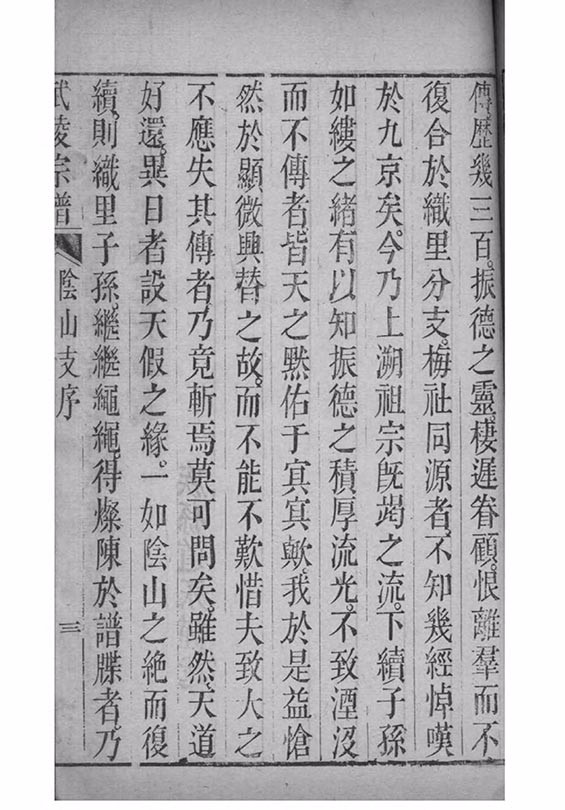 傳歷幾三百。振德之靈。棲遲眷顧。恨離羣而不
復合於織里分支。梅社同源者。不知幾經悼嘆
於九京矣。今乃上溯祖宗旣竭之流。下續子孫
如縷之緒。有以知振德之積厚流光。不致湮沒
而不傳者。皆天之黙佑于㝠㝠歟。我於是益愴
然於顯微興替之故。而不能不歎惜夫致大之
不應失其傳者。乃竟斬焉莫可問矣。雖然。天道
好還。異日者設天假之緣。一如陰山之絶而復
續。則織里子孫。繼繼繩繩。得燦陳於譜牒者。乃
武陵宗譜 陰山支序 三